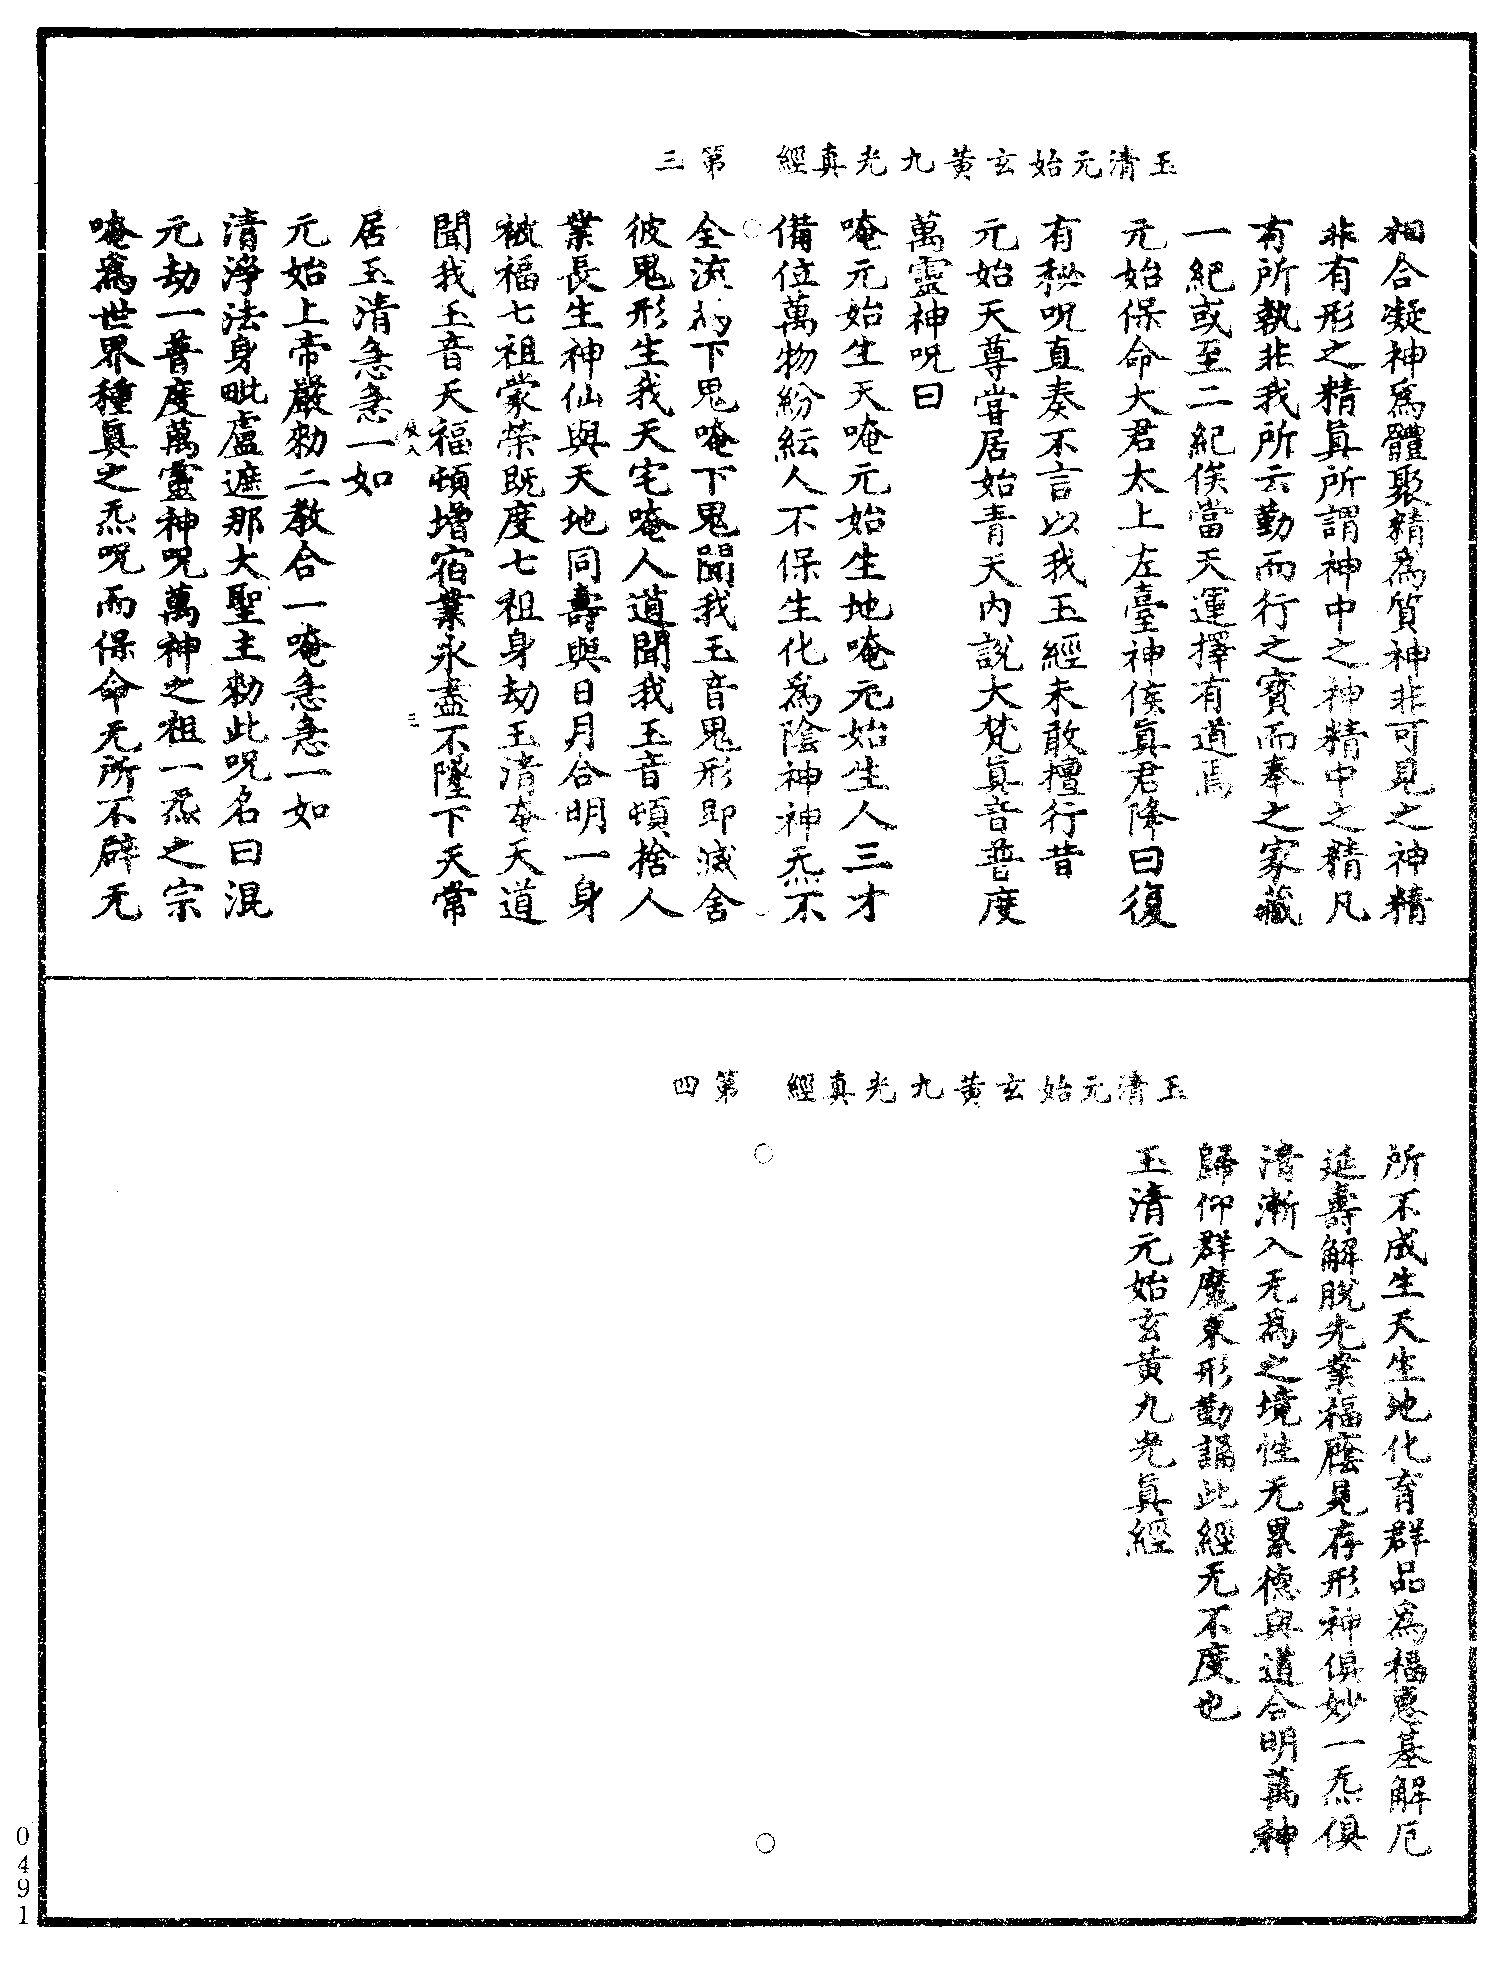 玉清元始玄黄九光真經　第三
相合凝神爲體聚精爲質神非可見之神精
非有形之精真所謂神中之神精中之精凡
有所執非我所云勤而行之寶而奉之家藏
一紀或至二紀俟當天運擇有道焉
元始保命大君太上左臺神侯真君降曰復
有秘呪直奏不言以我玉經未敢擅行昔
元始天尊嘗居始青天内說大梵真音普度
萬靈神呪曰
唵元始生天唵元始生地唵元始生人三才
備位萬物紛紜人不保生化爲陰神神炁不
全流下鬼唵下鬼聞我玉音鬼形即滅舍
彼鬼形生我天宅唵人道聞我玉音頓捨人
業長生神仙與天地同壽與日月合明一身
被福七祖蒙榮既度七祖身劫玉清唵天道
聞我玉音天福頓增宿業永盡不墮下天常
居玉清急急一如
元始上帝嚴勑二教合一唵急急一如
清淨法身毗盧遮那大聖主勑此呪名曰混
元劫一普度萬靈神呪萬神之祖一炁之宗
唵爲世界種真之炁呪而保命无所不辟无
三
玉清元始玄黄九光真經　第四
所不成生天生地化育群品爲福惠基解厄
延壽解脫先業福廕見存形神俱妙一炁俱
清漸入无爲之境性无累德與道合明萬神
歸仰群魔束形勤誦此經无不度也
玉清元始玄黄九光真經
0491